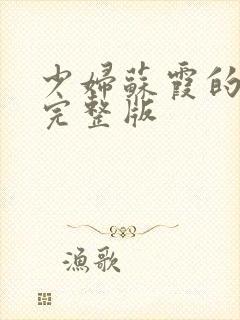 少婦蘇霞的
完整版
漁歌